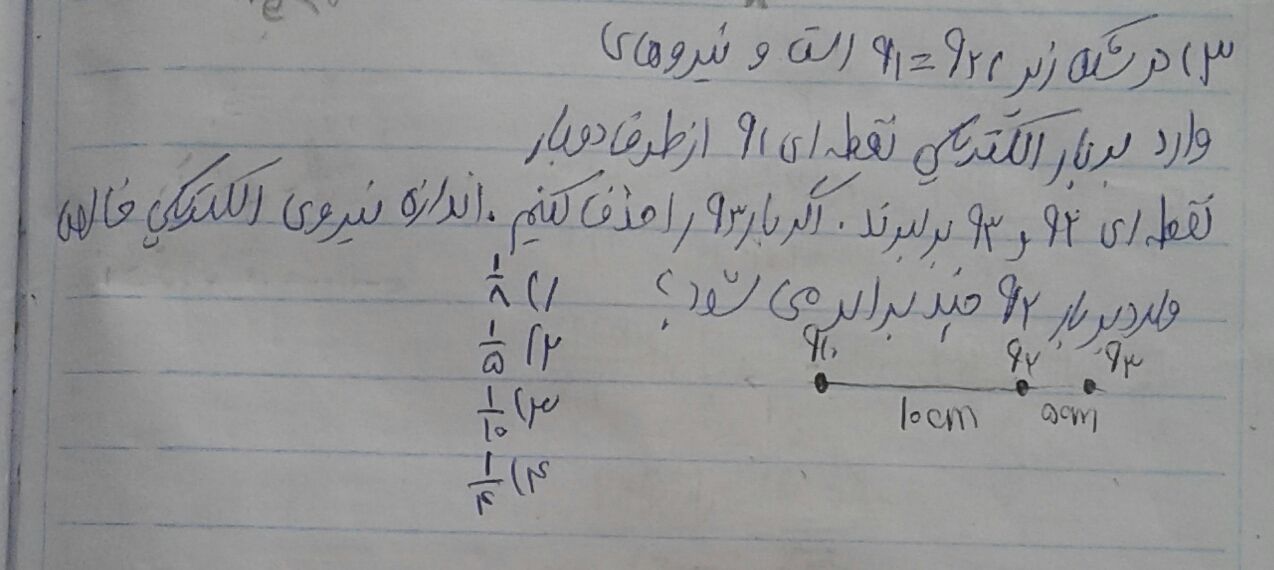 ۳) در شکل زیر، q۱ = q۲ است و نیروهای
وارد بر بار الکتریکی نقطه ای q۱ از طرف دو بار
نقطه ای q۲ و q۳ برابرند. اگر بار q۳ را حذف کنیم. اندازه نیروی الکتریکی خالص
وارد بر بار q۲ چند برابر می شود؟
۱) ۱/۸
۲) ۱/۵
۳) ۱/۱۰
۴) ۱/۴
q۱ q۲ q۳
۱۰cm ۵cm